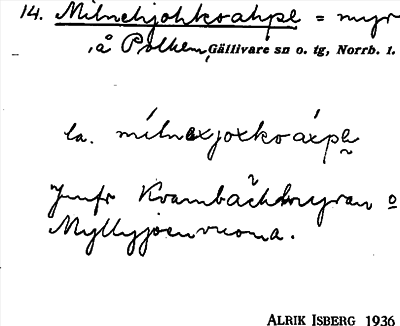 14. Milnehjohkoahpe = myr
å Polken, Gällivare sn o. tg, Norrb. l.
la. mílnexjoxkoáxpe
Jmfr Kvarnbäckmyran o
Myllyjoenvuoma.
ALRIK ISBERG 1936